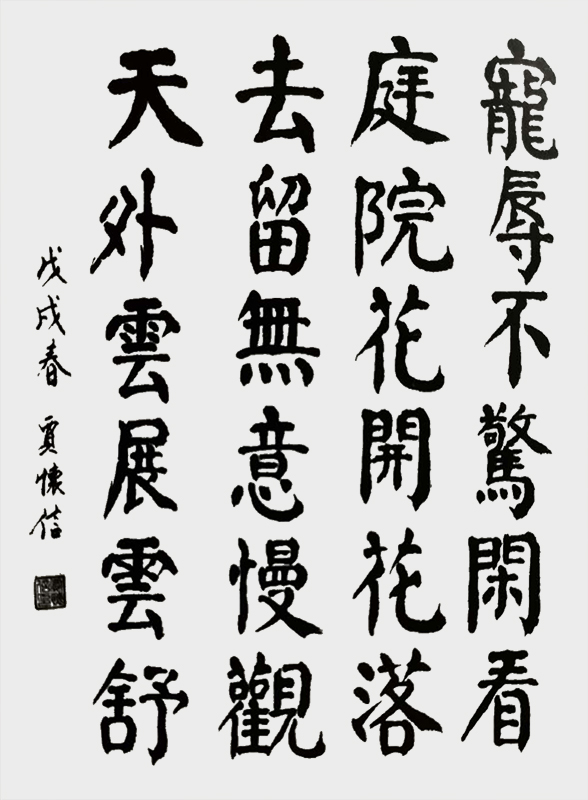 寵辱不驚閑看
庭院花開花落
去留無意慢觀
天外雲展雲舒
戊戌春 賈懷信